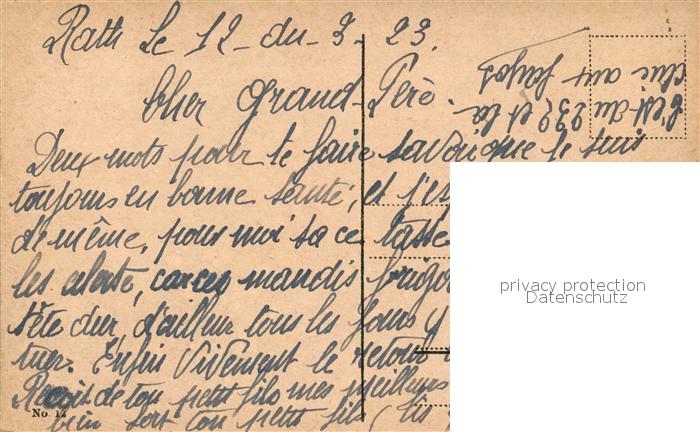 Rath le 12-du-3-23.
Cher Grand-Père.
Deux mots pour te faire savoir que je suis
toujours en bonne santé, et j'es
de même, pour moi sa ce tasse
les alerte, car ces maudis
tête dur, d'ailleur tous les jours y
tuer. Enfin vivement le retour
Reçoit de ton petit fils mes meilleurs
bien fort ton petit fils
No 12
C'est du 232 et la
aux
privacy protection
Datenschutz